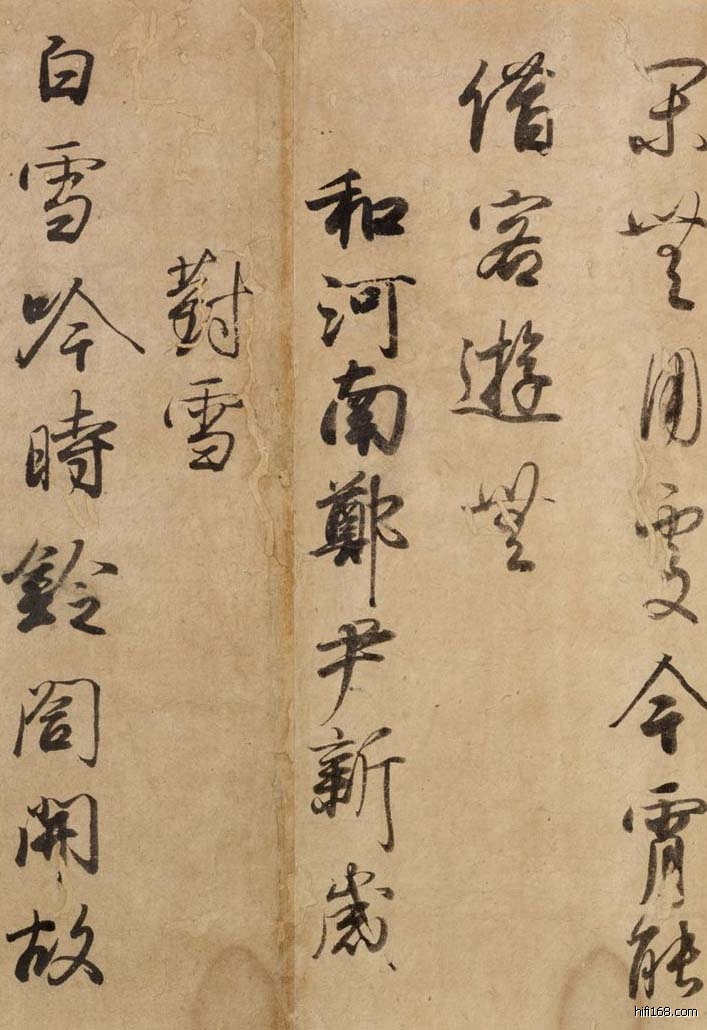 閑無用處今霄能
借客遊無
和河南鄭尹新歲
對雪
白雪吟時鈴閤開故
hifi168.com